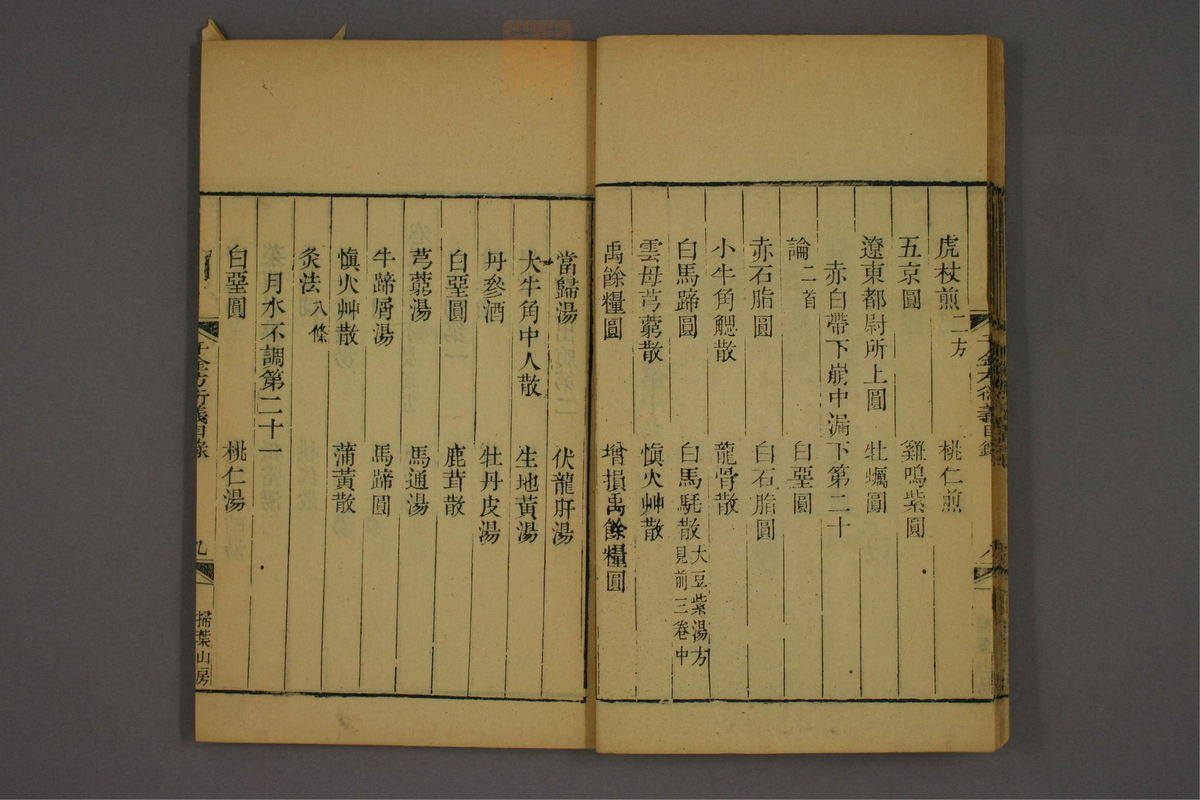 虎杖煎二方 桃仁煎
五京圓 雞鳴紫圓
遼東都尉所上圓 牡蠣圓
赤白帶下崩中漏下第二十
論二首 白堊圓
赤石脂圓 白石脂圓
小牛角䚡散 龍骨散
白馬蹄圓 白馬駞散大豆紫湯方見前三卷中
雲母芎藭散 慎火艸散
禹餘糧圓 增損禹餘糧圓
當歸湯 伏龍肝湯
大牛角中人散 生地黃湯
丹參酒 牡丹皮湯
白堊圓 鹿茸散
芎藭湯 馬通湯
牛蹄屑湯 馬蹄圓
慎火艸散 蒲黃散
灸法八條
月水不調第二十一
白堊圓 桃仁湯
千金方衍義目錄 九 掃葉山房
千金方衍義目錄 八